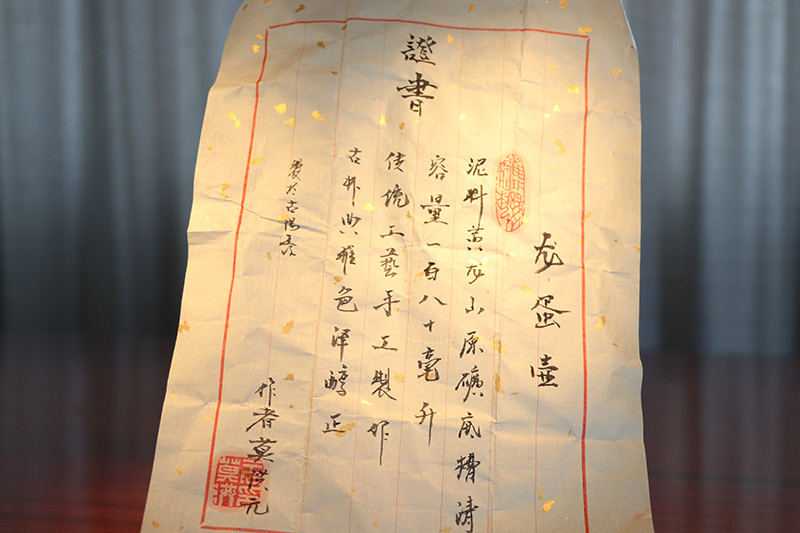 證書
龙蛋壶
泥料黄龙山原礦底槽清
容量一百八十毫升
传统工藝手工製作
古朴典雅色泽醇正
製於古陽羨
作者莫洪元